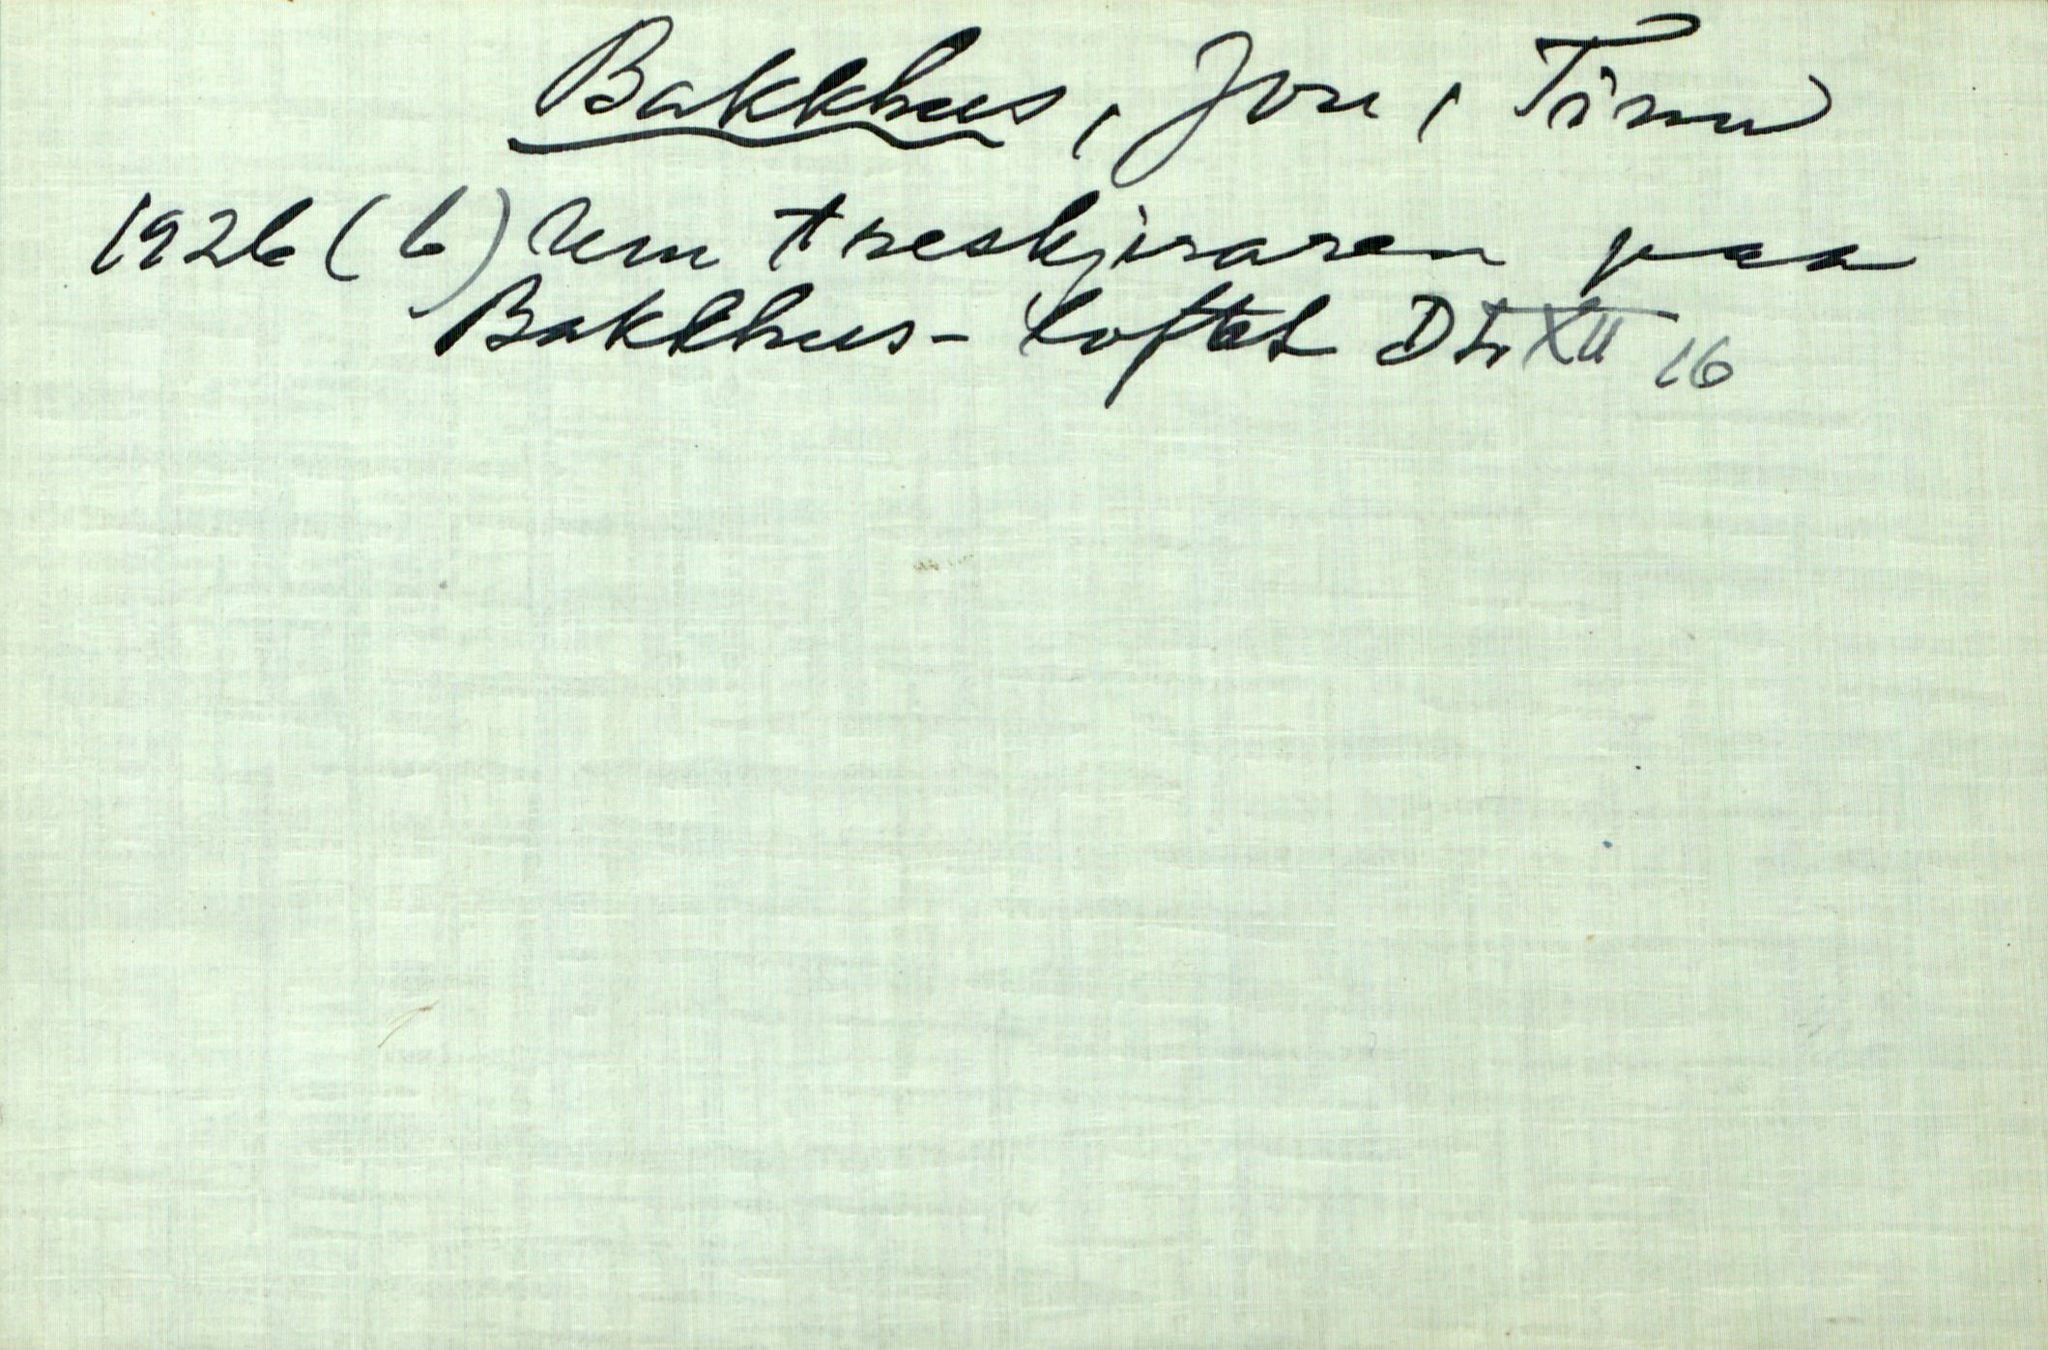 Bakkhus, Jon, Tinn
1926 (6) Um treskjeraren paa
Bakkhus-loftet DT XII 16